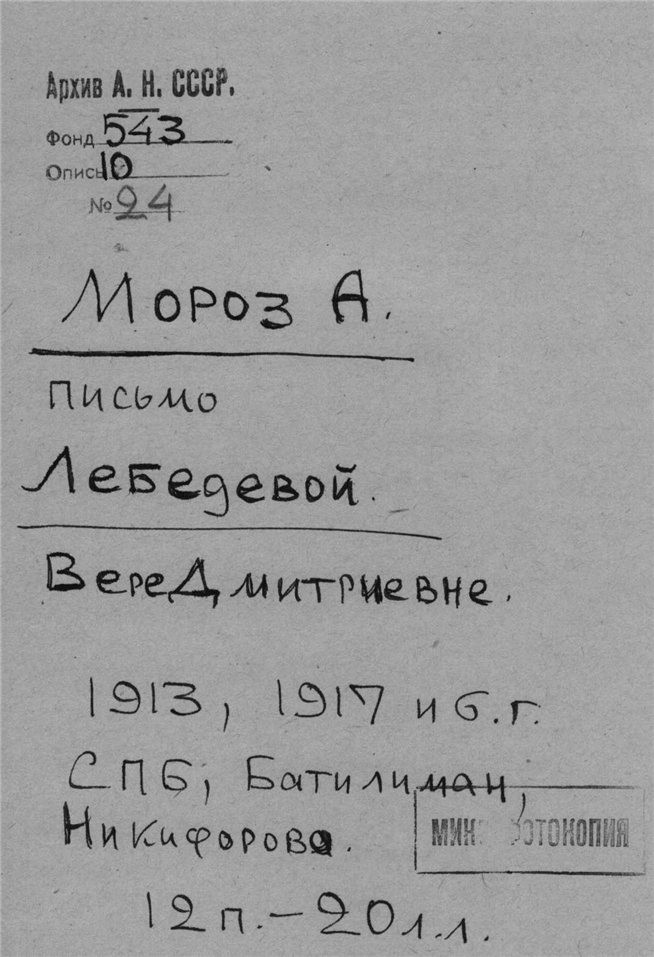 Архив А. Н. СССР.
Фонд 543
Опись 10
№ 24
Мороз А.
письмо
Лебедевой.
Вере Дмитриевне.
1913, 1917 и б.г.
СПб, Батилиман,
Никифорово.
12 п. – 20 л.л.